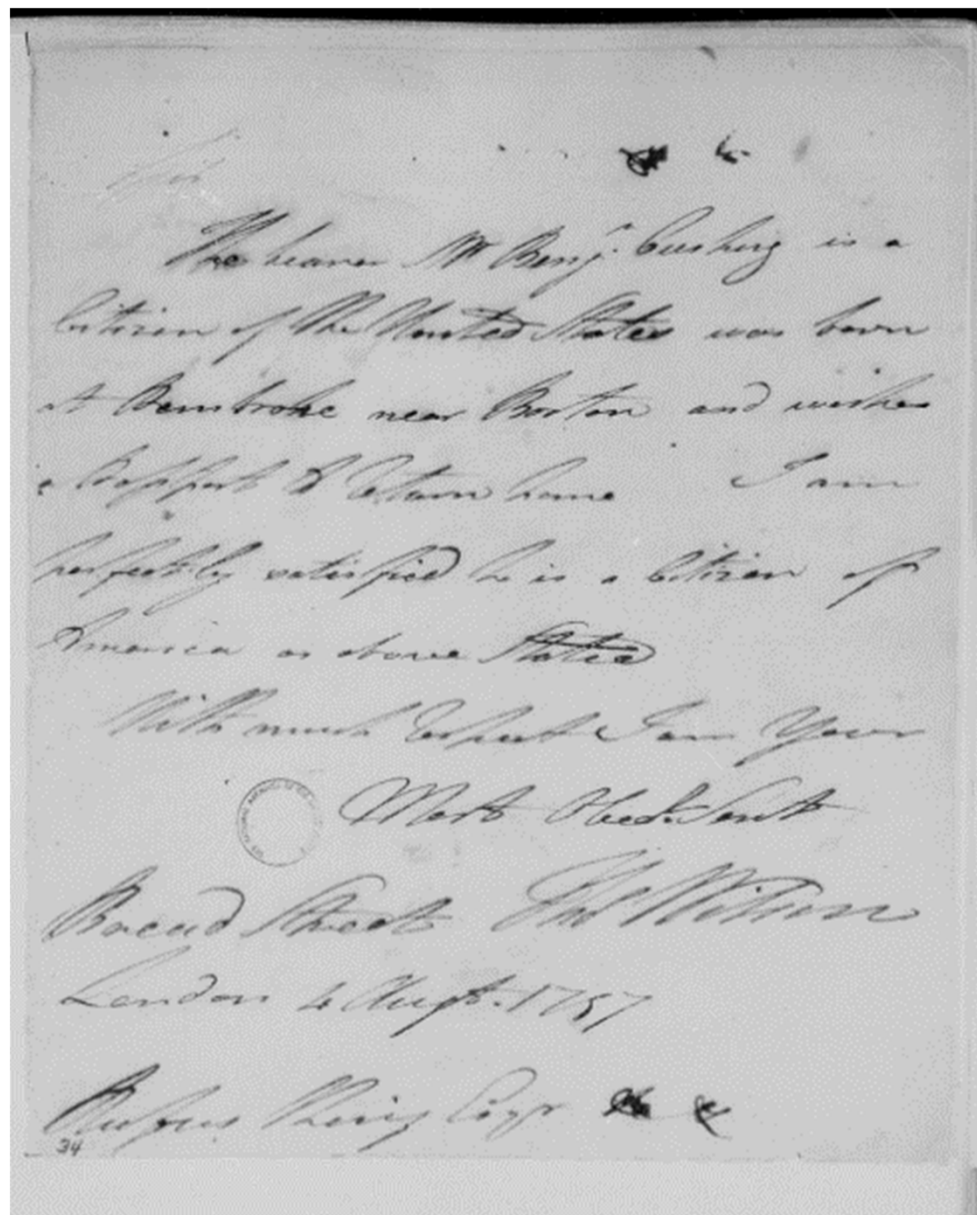 Sir
The bearer Mr Benjn. Cushing is a
Citizen of the United States was born
at Pembroke near Boston and wishes
a Passport to Return home I am
perfectly satisfied he is a Citizen of
America as above Stated
With much Respect I am Your
Most Obedt. Servt
Broad Street Thos Wilson
London 4 Augst. 1797
Rufus King Esqr
34